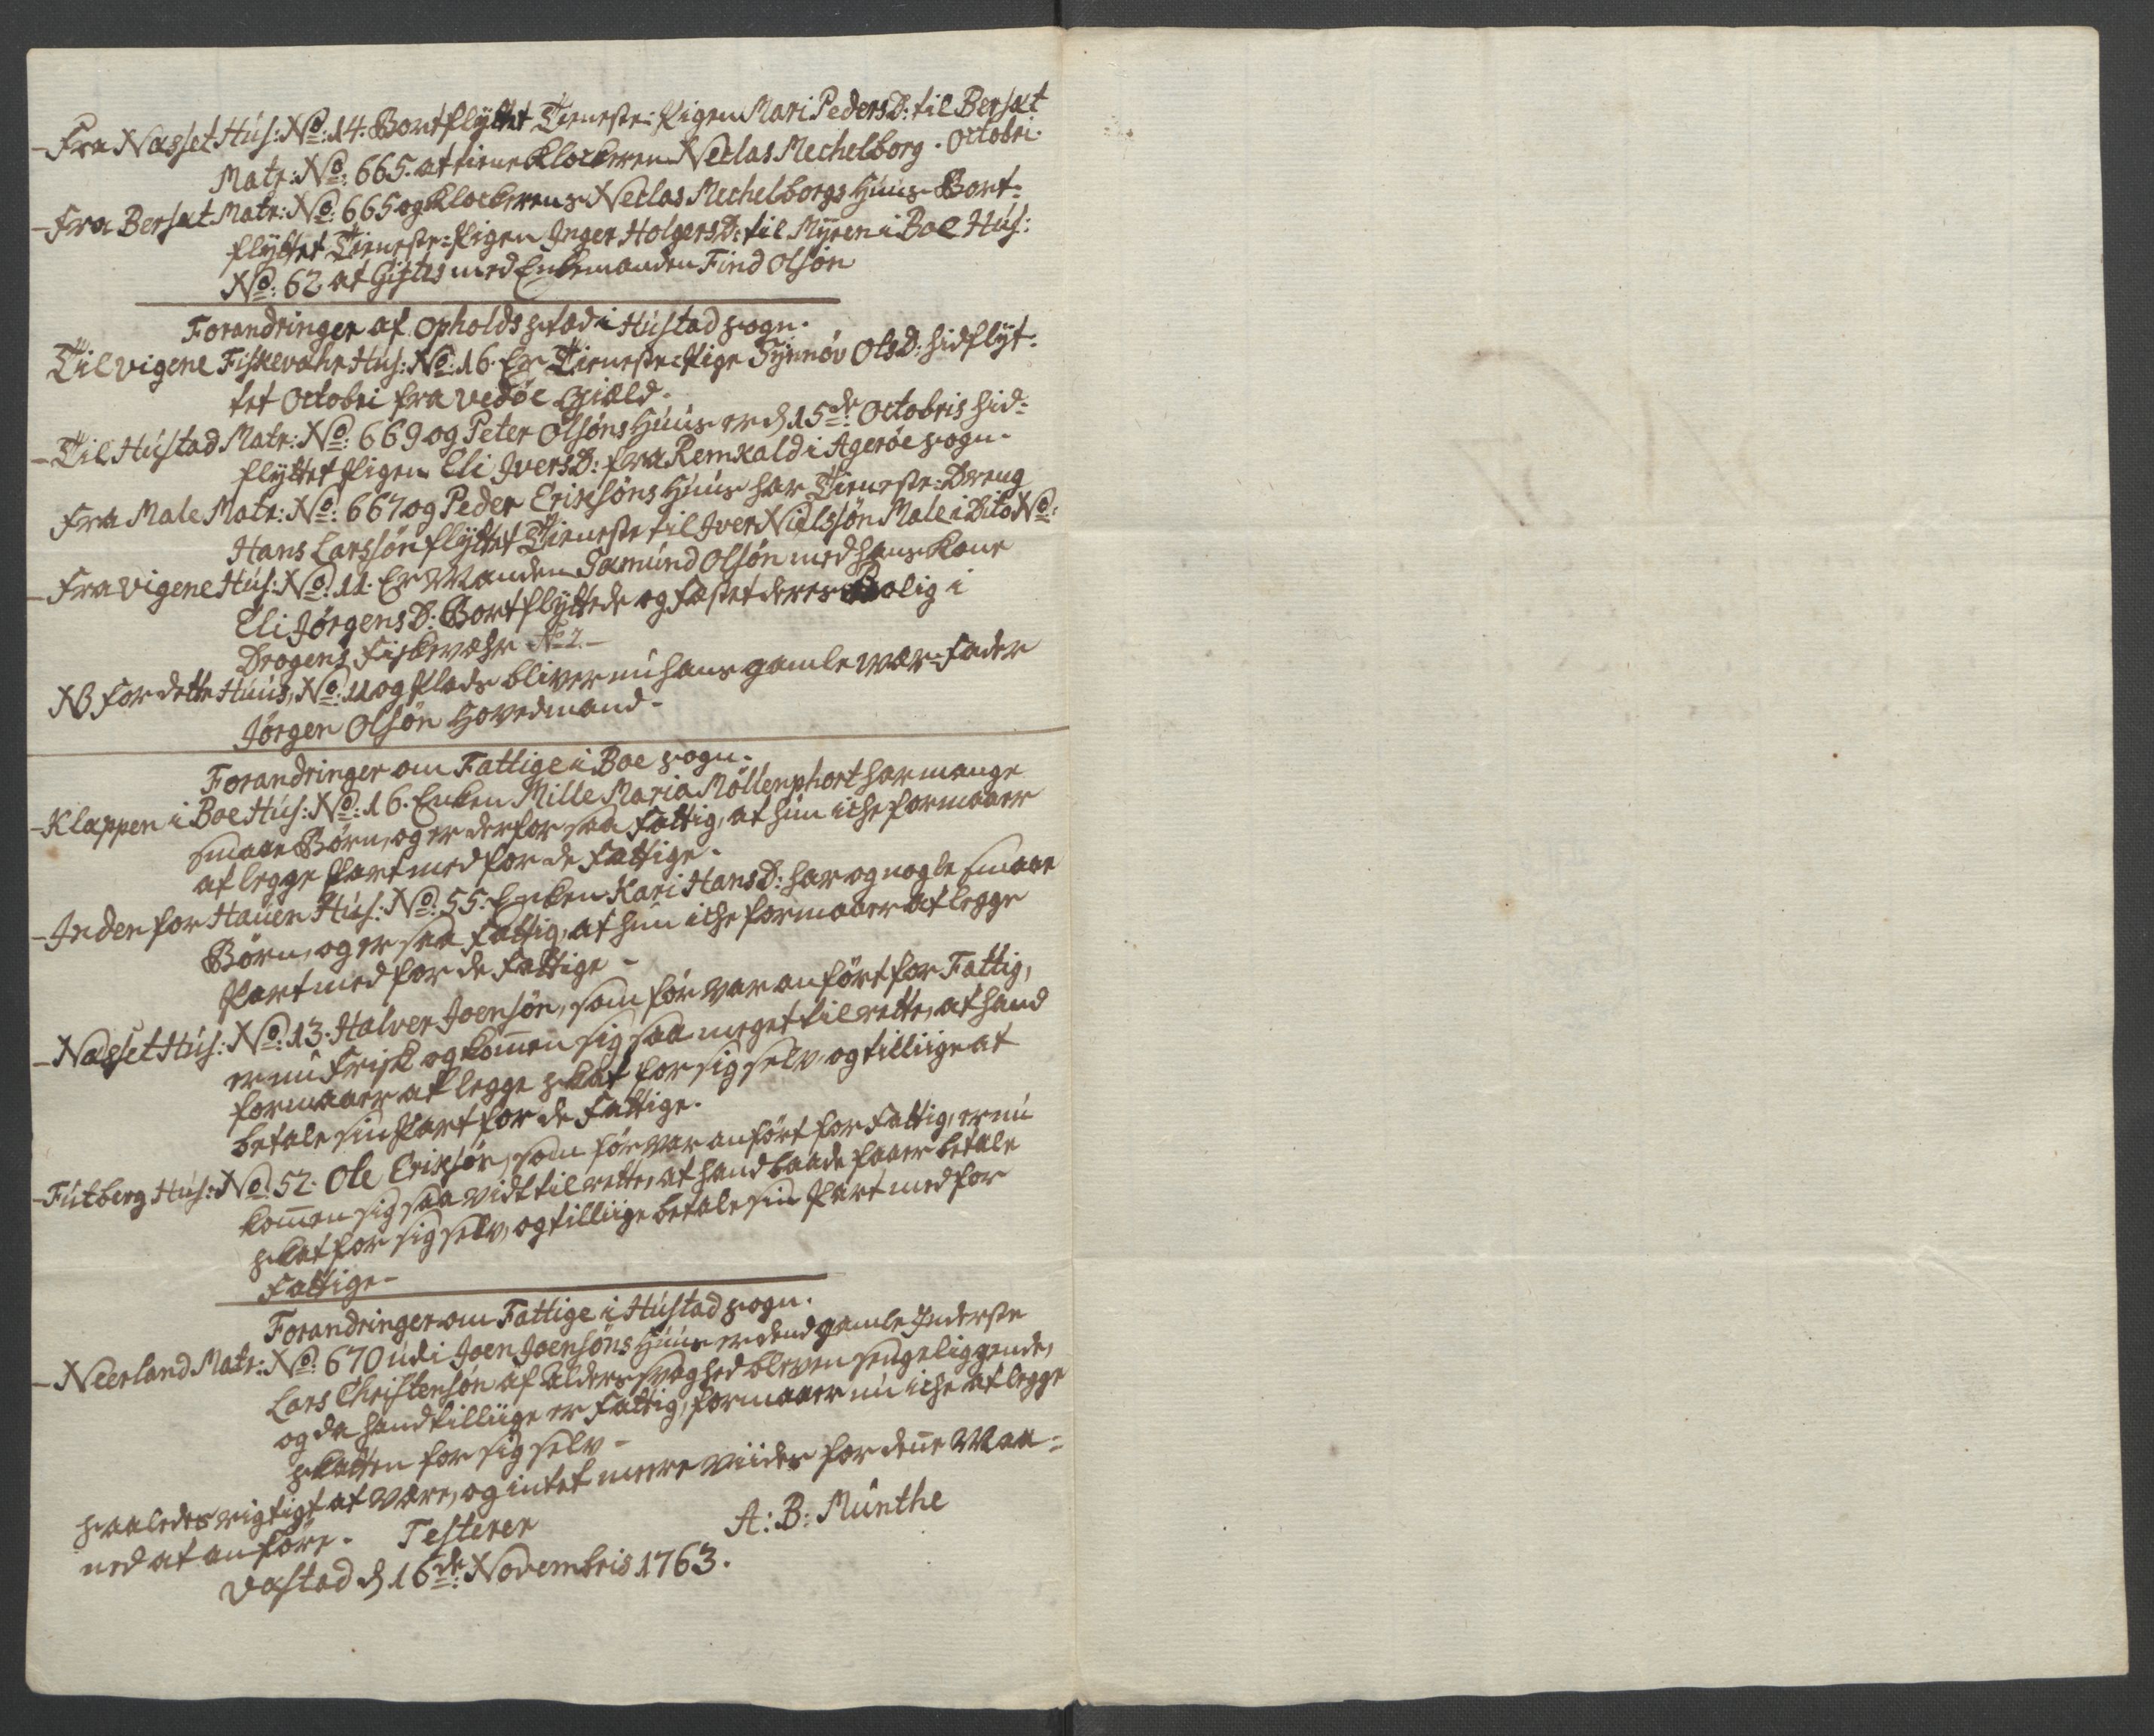 -Fra Næsset Hus: No: 14. Bortflyttet Tieneste-Pigen Mari Peders D: til Bersæt
Matr: No: 665. at tiene Klockeren Neclas Mechelborg. Octobri.
-Fra Bersæt Matr: No: 665 og Klockerens Neclas Mechelborgs Huus Bort-
flyttet Tieneste-Pigen Inger Holgers D: til Myren i Boe Hus:
No: 62 at Giftes med Enkemanden Find Olsøn
Forandringer af Opholds stæd i Hustad Sogn.
Til Vigene Fiskevæhr Hus: No: 16. Er Tieneste-Pige Synnøv Ols D: hidflyt-
tet Octobri fra Vedøe Giæld.
-Til Hustad Matr: No: 669 og Peter Olsøns Huus er d 15de Octobris hid-
flyttet Pigen Eli Ivers D: fra Remxald i Agerøe Sogn.
Fra Male Matr: No: 667 og Peder Erixsøns Huus har Tieneste-Dreng
Hans Larssøn flyttet Tieneste til Iver Nielssøn Male i Dito No:
-Fra Vigene Hus: No: 11. Er Manden Samund Olsøn med hans Kone
Eli Jørgens D: Bortflyttede og fæstet deres Bolig i
Drogens Fiskevæhr No 2.-
NB for dette Huus, No: 11 og Plads bliver nu hans gamle Vær-Fader
Jørgen Olsøn Hovedmand-
Forandringer om Fattige i Boe Sogn.
-Klappen i Boe Hus: No: 16. Enken Mille Maria Møllenphort har mange
smaae Børn, og er derfor saa Fattig, at hun iche formaaer
at legge Part med for de Fattige.
-Inden for Hauen Hus: No: 55. Enken Kari Hans D: har og nogle smaae
Børn, og er saa Fattig, at hun iche formaaer at legge
Part med for de Fattige-
-Næsset Hus: No: 13. Halver Joensøn, som før var anført for Fattig,
er nu Frisk og kommen sig saa meget til rette, at hand
formaaer at legge Skat for sig selv, og tilliige at
betale sin Part for de Fattige.
-Futberg Hus: No: 52. Ole Erixsøn, som før var anført for Fattig, er nu
kommen sig saa vidt til rette, at hand baade faaer betale
Skat for sig selv, og tilliige betale sin Part med for
Fattige-
Forandringer om Fattige i Hustad Sogn.
-Neerland Matr: No: 670 udi Joen Joensøns Huus er dend gamle Inderste
Lars Christensøn af Alders Svaghed bleven sengeliggende,
og da hand tilliige er Fattig, formaaer nu iche at legge
Skatten for sig selv-
Saaledes rigtigt at være, og intet meere viides for denne Maa-
ned at anføre. Testerer
A: B: Münthe
Vastad d 16de Novembris 1763.